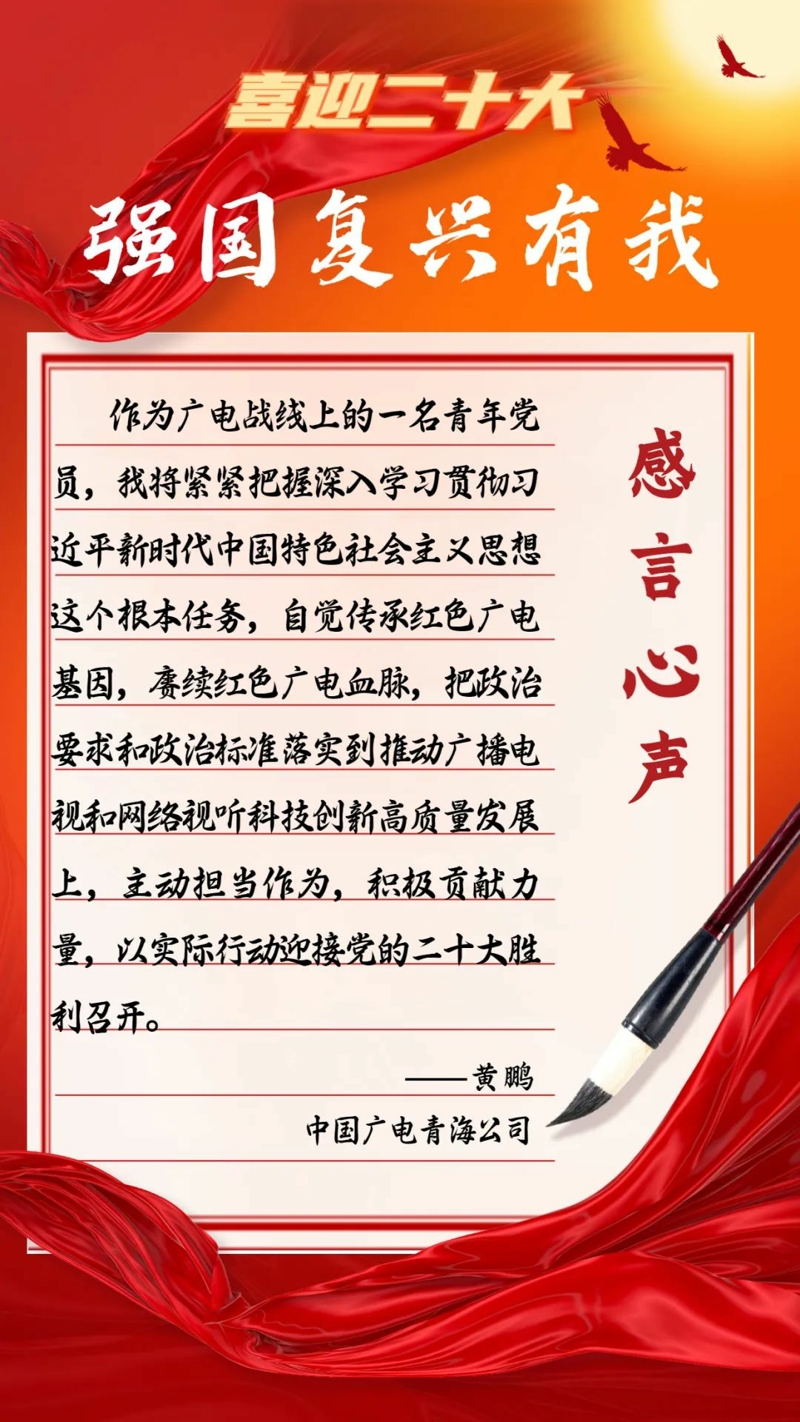 喜迎二十大
强国复兴有我
作为广电战线上的一名青年党
员，我将紧紧把握深入学习贯彻习
近平新时代中国特色社会主义思想
这个根本任务，自觉传承红色广电
基因，赓续红色广电血脉，把政治
要求和政治标准落实到推动广播电
视和网络视听科技创新高质量发展
上，主动担当作为，积极贡献力
量，以实际行动迎接党的二十大胜
利召开。
——黄鹏
中国广电青海公司
感言心声